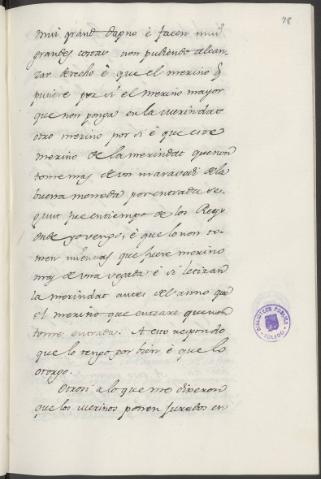 78
mui grand dapno é facen mui
grandes costas non pudiendo alcan-
zar derecho é que el merino q
pusiere por si el merino mayor
que non ponga en la merindat
otro merino por si é que este
merino de la merindat que non
tome mas de un maravedi de la
buena moneda por entrada se-
gunt fue en tiempo de los Reys
onde yo vengo, é que lo non to-
men mas que fuere merino
mas de una vegada é si dexieren
la merindat antes del anno que
el merino que entrare que non
tome entrada. A esto respondo
que lo tengo por bien é que lo
otorgo.
Otrosi a lo que me dixeron
que los merinos ponen jurados en
BIBLIOTECA PUBLICA
TOLEDO